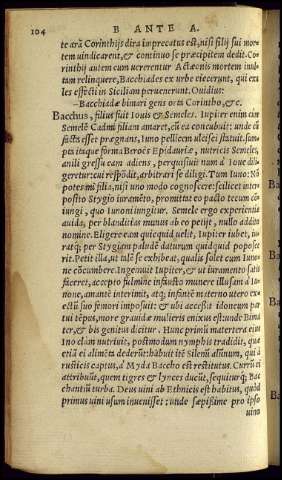 104 B ANTE A.
te arā Corinthijs dira imprecatus est, nisi filij sui mor-
tem vindicarent, & continuo se præcipitem dedit. Co-
rinthij autem cum vererentur Actæonis mortem inul-
tum relinquere, Bacchiades ex vrbe eiecerunt, qui exu-
les effecti in Siciliam peruenerunt. Ouidius:
—Bacchiadæ bimari gens orti Corintho, &c.
Bacchus, filius fuit Iouis & Semeles. Iupiter enim cùm
Semelē Cadmi filiam amaret, cū ea concubuit: unde cū
facta esset prægnans, Iuno pellicem ulcisci statuit. sum-
pta itaque forma Beroes Epidauriæ, nutricis Semeles,
anili gressu eam adiens, persuasit nam à Ioue dili-
geretur: cui respōdit, arbitrari se diligi. Tum Iuno: Nō
potes mi filia, nisi uno modo cognoscere: scilicet inter-
posito Stygio iuramēto, promittat eo pacto tecum cō-
iungi, quo Iunoni iungitur. Semele ergo experiendi
auida, per blanditias munus ab eo petijt, nullo addito
nomine. Eligere eam quicquid uelit, Iupiter iubet, iu-
ratq; per Stygiam paludē daturum quidquid poposce
rit. Petit illa, ut talē se exhibeat, qualis solet cum Iuno-
ne cōcumbere. Ingemuit Iupiter, & ut iuramento satis
faceret, accepto fulmine infausto munere illusam à Iu-
none, amantē interimit, atq; infantē materno utero ex
ectū suo femori imposuit: & ubi accessit idoneum par
tui tēpus, more grauidæ mulieris enixus est: unde Bima
ter, & bis genitus dicitur. Hunc primùm matertera eius
Ino clam nutriuit, postmodum nymphis tradidit, quæ
etiā ei alimēta dederūt: habuit itē Silenū alūnum, qui à
rusticis captus, à Myda Baccho est restitutus. Currū ei
attribuūt, quem tigres & lynces ducūt, sequiturq; Bac
chantiū turba. Deus uini ab Ethnicis est habitus, quòd
primus uini usum inuenisset: unde sæpissime pro ipso
uino